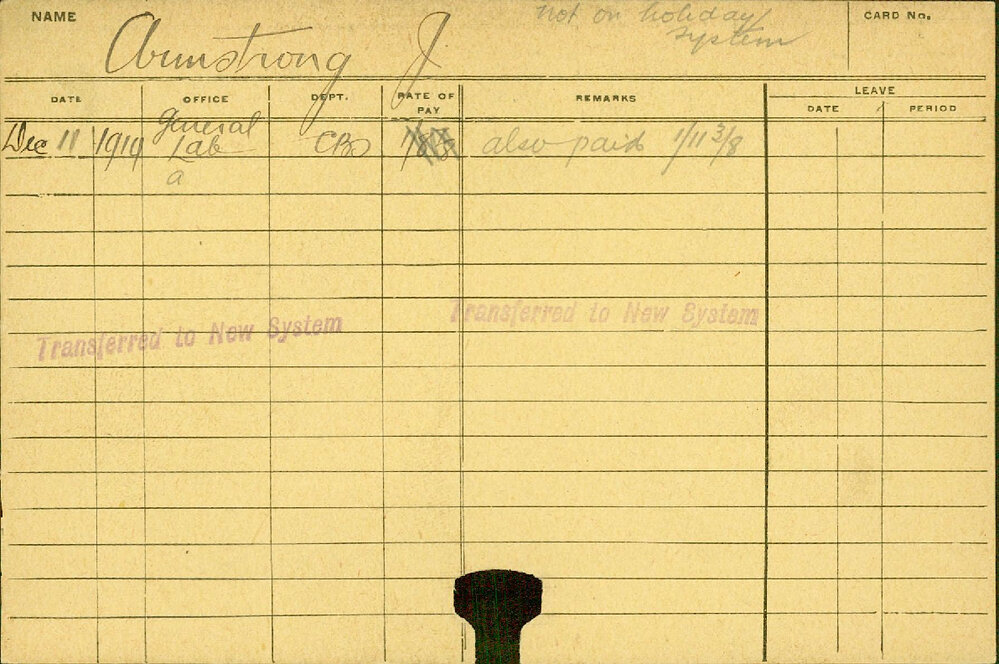 NAME Armstrong J. not on holiday CARD No.
system
DATE OFFICE DEPT. RATE OF PAY REMARKS LEAVE
DATE PERIOD
Dec 11 1919 General Lab CBO also paid 1/11 3/8
a
Transferred to New System Transferred to New System